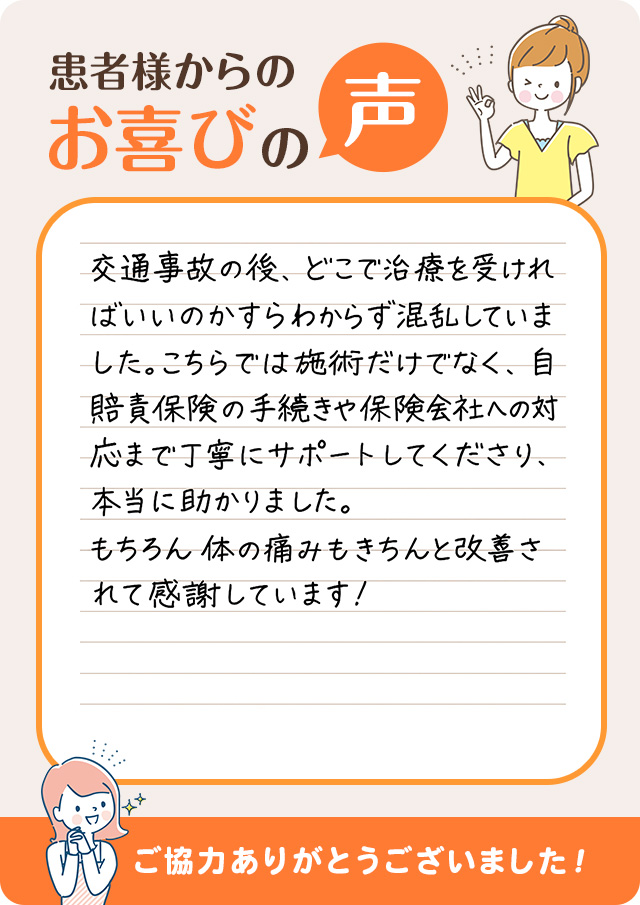 患者様からの
お喜びの声
交通事故の後、どこで治療を受けれ
ばいいのかすらわからず混乱していま
した。こちらでは施術だけでなく、自
賠責保険の手続きや保険会社への対
応まで丁寧にサポートしてくださり、
本当に助かりました。
もちろん体の痛みもきちんと改善さ
れて感謝しています!
ご協力ありがとうございました!